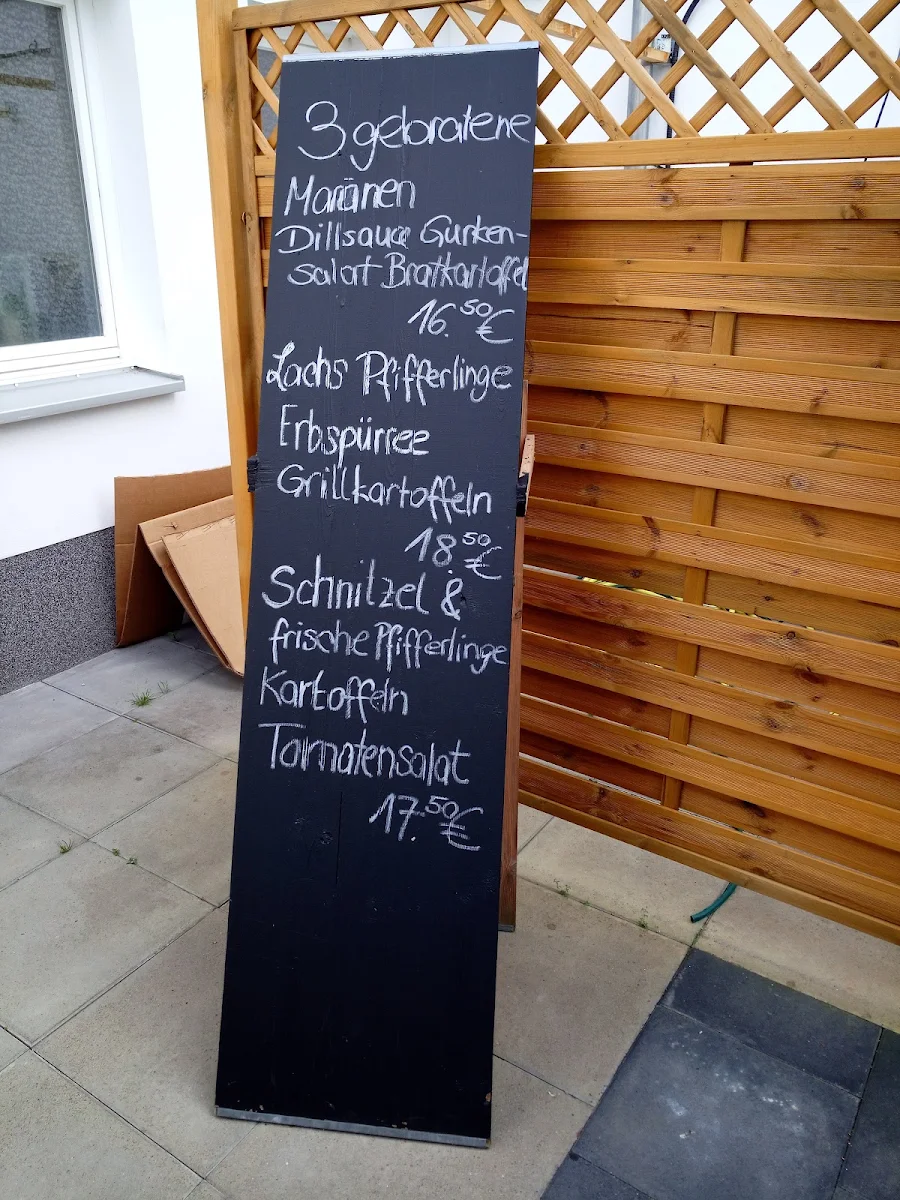 3 gebratene
Maränen
Dillsauce Gurken-
salat Bratkartoffel
16.50€
Lachs Pfifferlinge
Erbspürree
Grillkartoffeln
18.50€
Schnitzel &
frische Pfifferlinge
Kartoffeln
Tomatensalat
17.50€